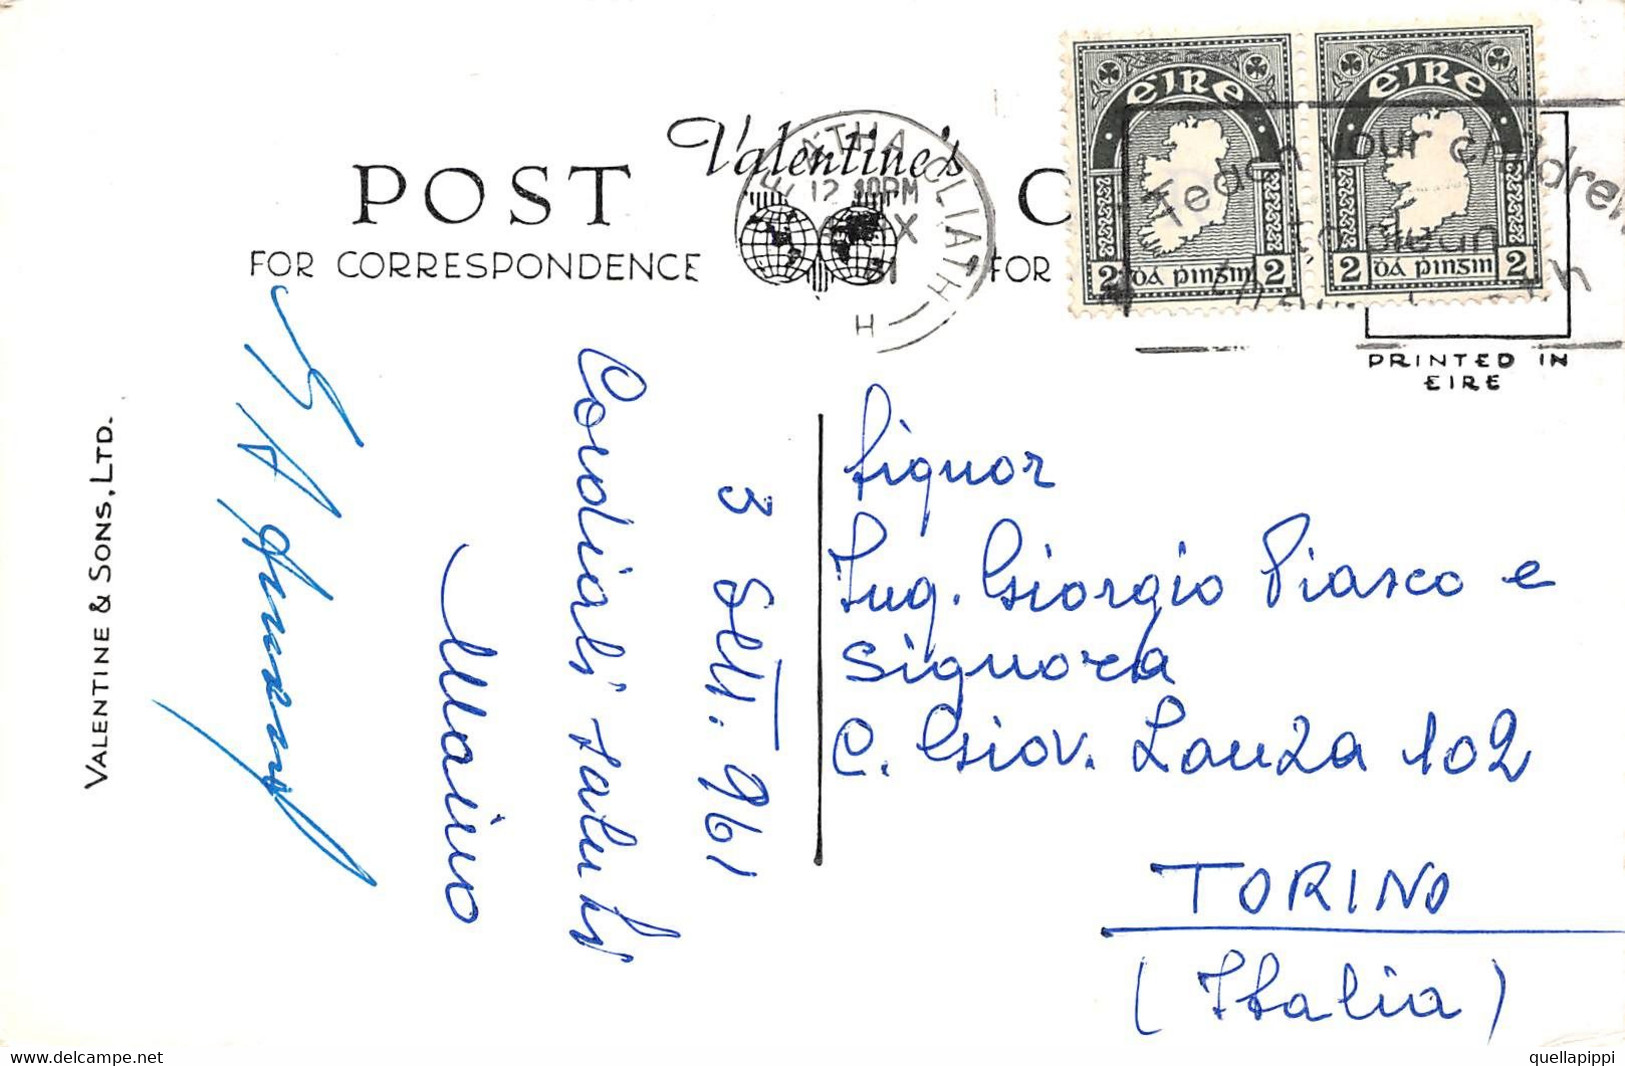 POST
Valentine's
FOR CORRESPONDENCE
FOR
ÁTHA CLIATH
12 PM
H
ÉIRE
2 DÁ PINGIN 2
ÉIRE
2 DÁ PINGIN 2
Teach your children
PRINTED IN
EIRE
VALENTINE & SONS, LTD.
3 Sett. 961
Cordiali saluti
Signor
Ing. Giorgio Piasco e
Signora
C. Giov. Lanza 102
TORINO
(Italia)
delcampe.net
quellapippi